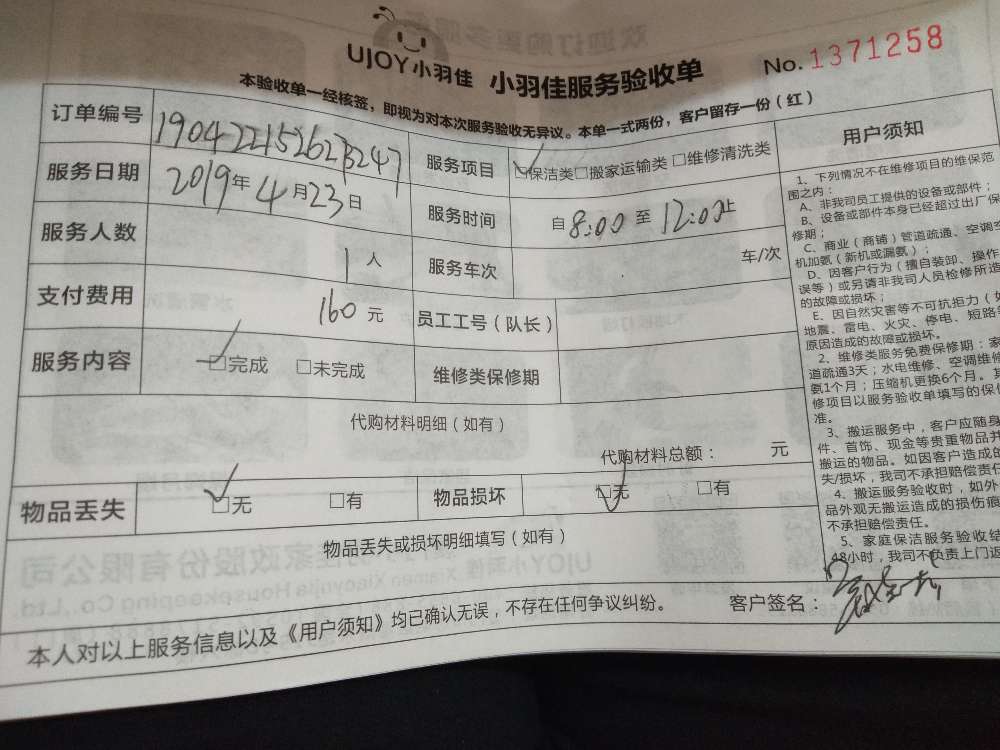 UJOY小羽佳 小羽佳服务验收单 No. 1371258
本验收单一经核签，即视为对本次服务验收无异议。本单一式两份，客户留存一份（红）
订单编号
服务项目 ☑保洁类 □搬家运输类 □维修清洗类
服务日期 2019年4月23日 服务时间 自8:00至12:00止
服务人数 1人 服务车次 车/次
支付费用 160元 员工工号（队长）
服务内容 ☑完成 □未完成 维修类保修期
代购材料明细（如有）
代购材料总额： 元
物品丢失 ☑无 □有 物品损坏 ☑无 □有
物品丢失或损坏明细填写（如有）
客户签名：
本人对以上服务信息以及《用户须知》均已确认无误，不存在任何争议纠纷。
用户须知
1、下列情况不在维修项目的维保范
围之内：
A、非我司员工提供的设备或部件；
B、设备或部件本身已经超过出厂保
修期；
C、商业（商铺）管道疏通、空调空
机加氨（新机或漏氨）；
D、因客户行为（擅自装卸、操作
误等）或另请非我司人员检修所造
的故障或损坏；
E、因自然灾害等不可抗拒力（如
地震、雷电、火灾、停电、短路等
原因造成的故障或损坏。
2、维修类服务免费保修期：家
道疏通3天；水电维修、空调维修
氨1个月；压缩机更换6个月。其
修项目以服务验收单填写的保修
准。
3、搬运服务中，客户应随身
件、首饰、现金等贵重物品并
搬运的物品。如因客户造成的
失/损坏，我司不承担赔偿责任
4、搬运服务验收时，如外
品外观无搬运造成的损伤痕
不承担赔偿责任。
5、家庭保洁服务验收结
48小时，我司不负责上门返